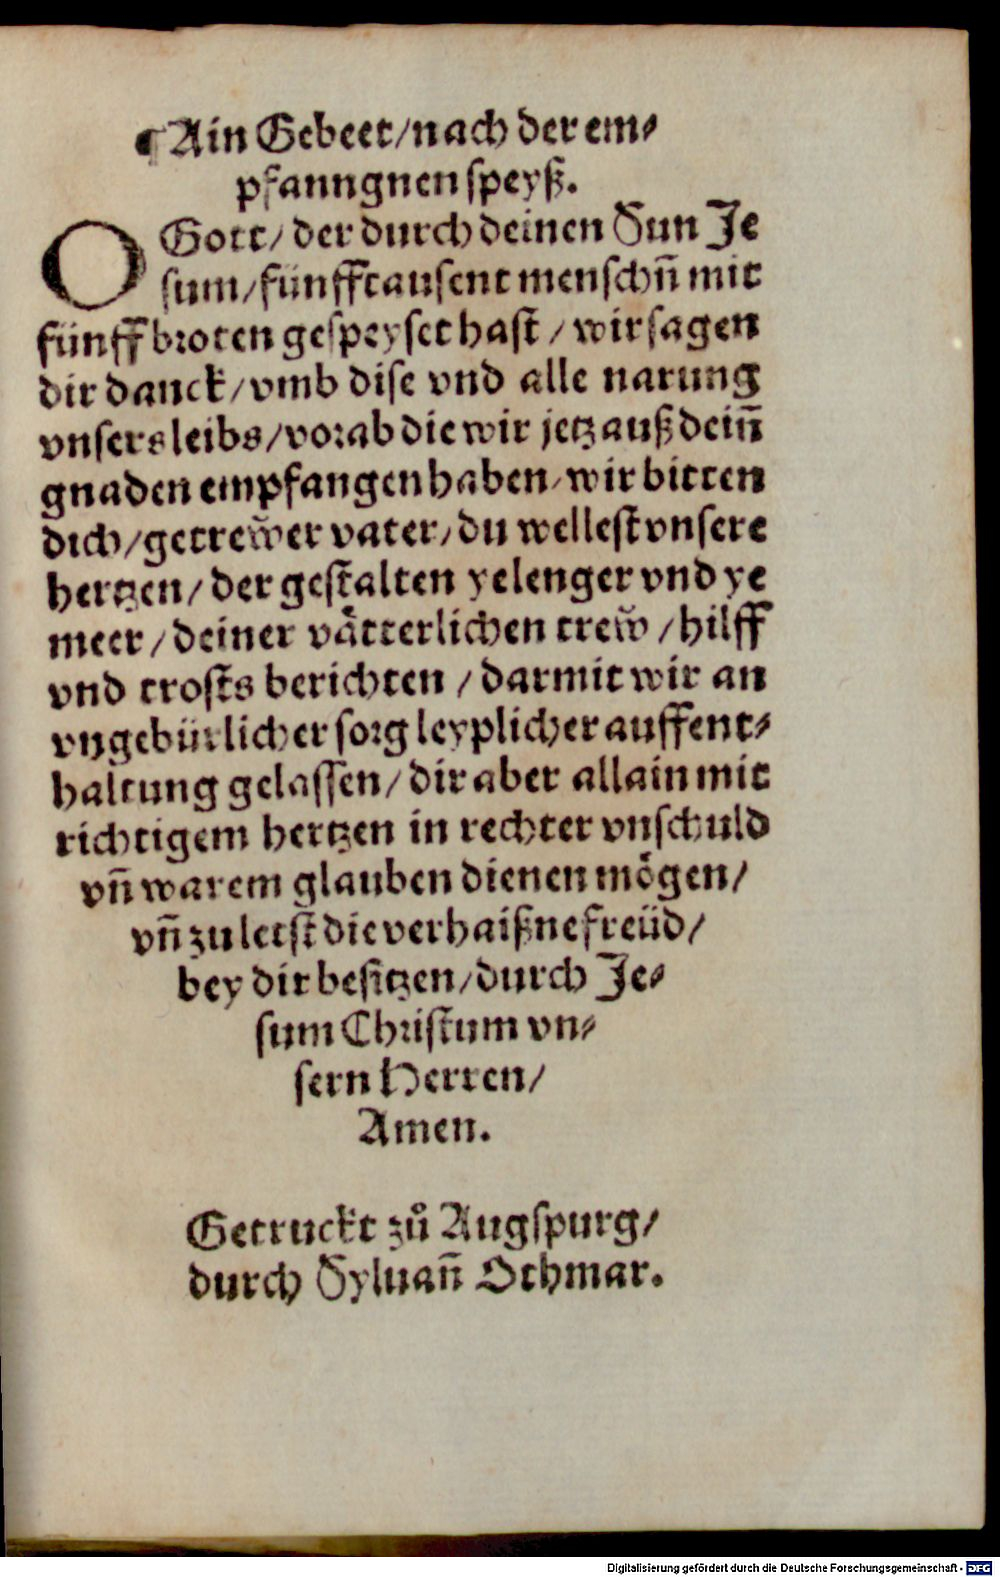 ¶ Ain Gebeet/ nach der em⸗
pfanngnen speyß.
O Gott/ der durch deinen Sun Je
sum/ fünfftausent menschñ mit
fünff broten gespeyset hast/ wir sagen
dir danck/ vmb dise vnd alle narung
vnsers leibs/ vorab die wir jetz auß deiñ
gnaden empfangen haben/ wir bitten
dich/ getrewͤer vater/ du wellest vnsere
hertzen/ der gestalten yelenger vnd ye
meer/ deiner vaͤtterlichen trewͤ/ hilff
vnd trosts berichten/ darmit wir an
vngebürlicher sorg leyplicher auffent⸗
haltung gelassen/ dir aber allain mit
richtigem hertzen in rechter vnschuld
vñ warem glauben dienen moͤgen/
vñ zu letst die verhaißne freüd/
bey dir besitzen/ durch Je⸗
sum Christum vn⸗
sern Herren/
Amen.
Getruckt zuͦ Augspurg/
durch Syluañ Othmar.
Digitalisierung gefördert durch die Deutsche Forschungsgemeinschaft - DFG